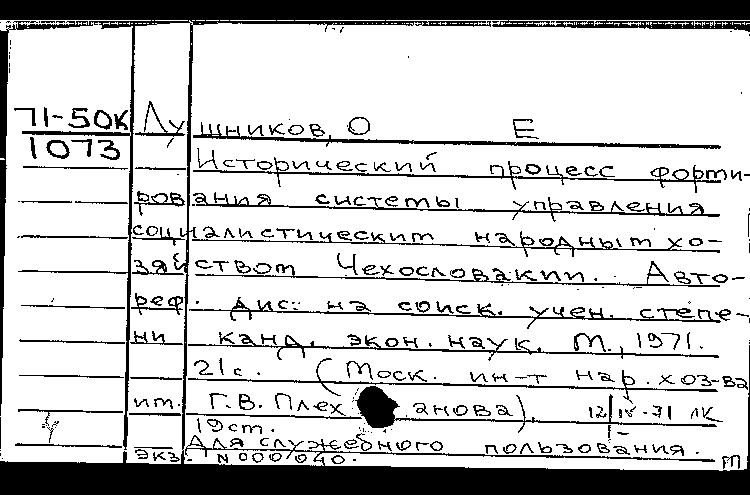 71-50К Лушников, О Е
1073 Исторический процесс форми-
рования системы управления
социалистическим народным хо-
зяйством Чехословакии. Авто-
реф. Дис. на соиск. учен. степе-
ни канд. экон. наук. М., 1971.
21 с. (Моск. ин-т нар. хоз-ва
им. Г.В. Плеханова). 12/IV-71 ЛК
19 ст.
Для служебного пользования.
экз. N 000/040. м
4